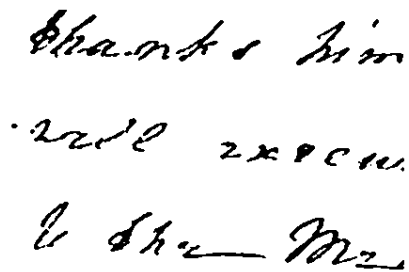 thanks him
will execu
to the Mr